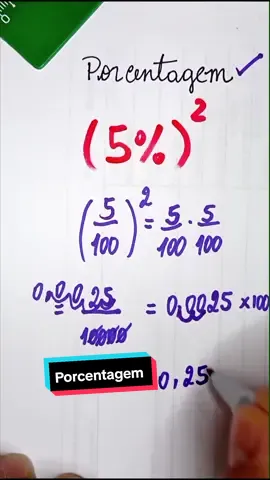 Porcentagem ✓
(5%)²
(5/100)² = 5/100 · 5/100
0,0025/10000 = 0,0025 x100
Porcentagem 0,25